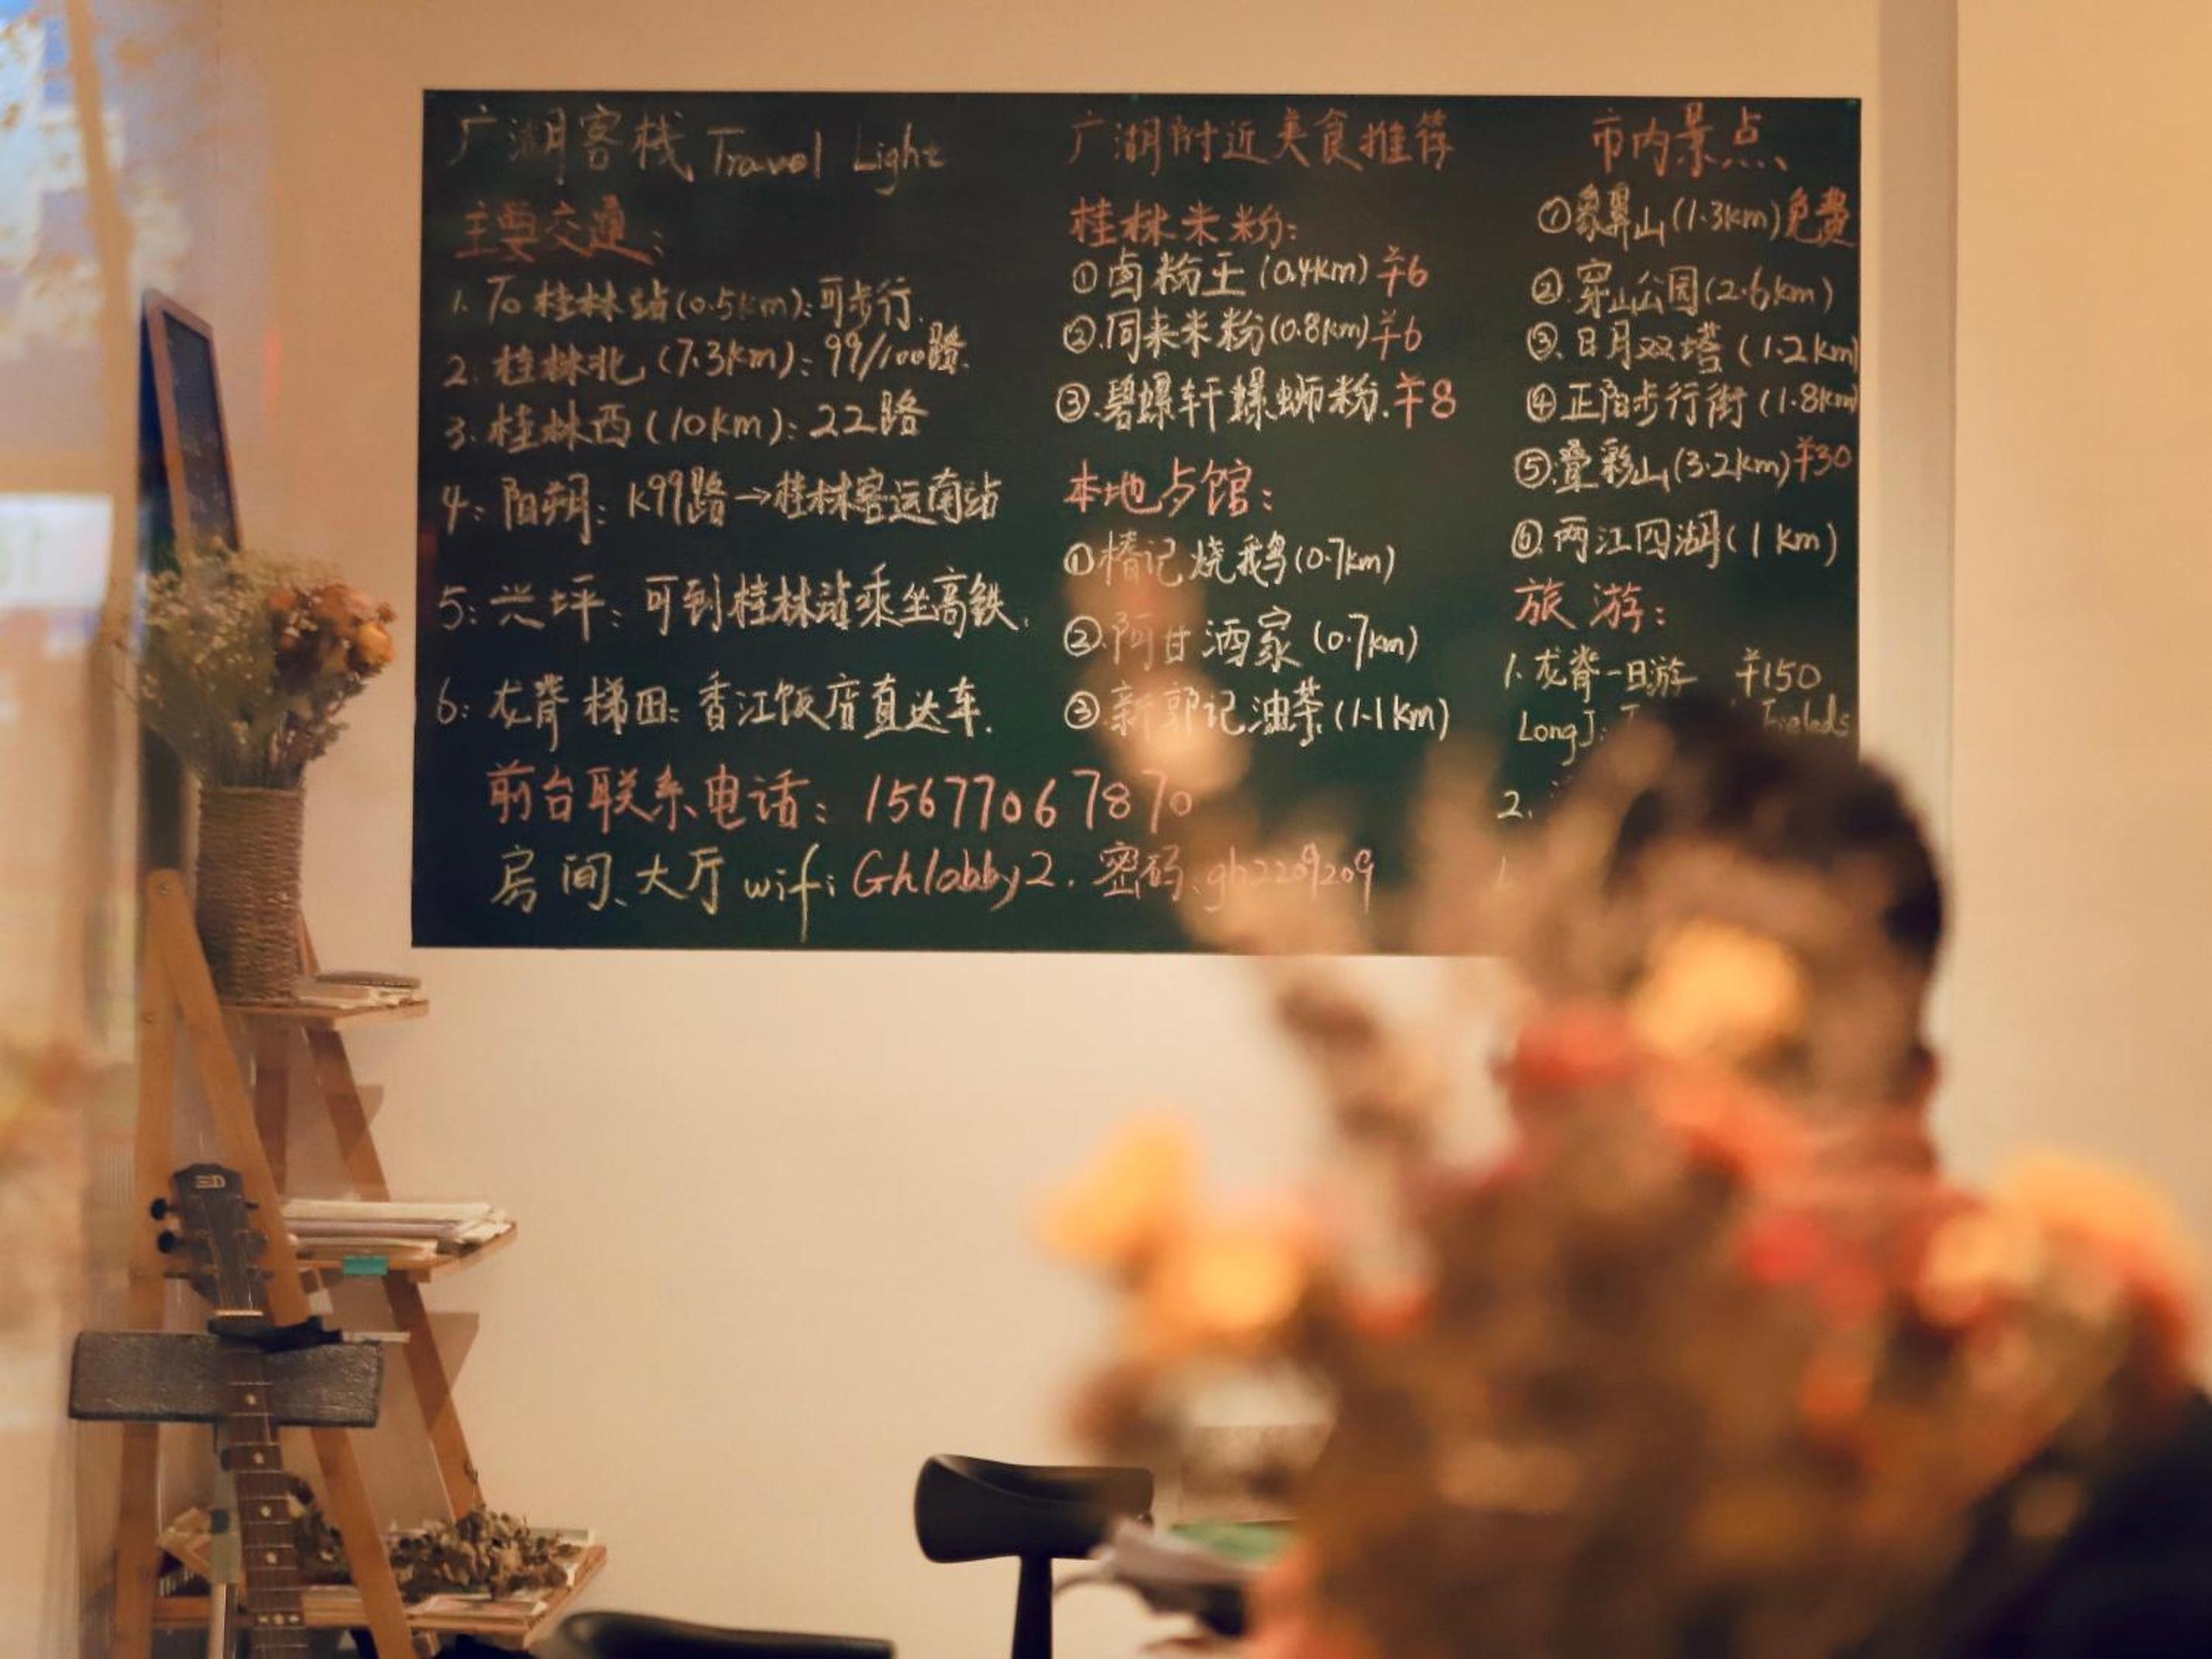 广湖客栈 Travel Light
主要交通:
1. To 桂林站(0.5km):可步行.
2. 桂林北 (7.3km): 99/100路.
3. 桂林西(10km): 22路
4: 阳朔: K99路→桂林客运南站
5: 兴坪: 可到桂林站乘坐高铁.
6: 龙脊梯田: 香江饭店直达车.
前台联系电话: 15677067870
房间、大厅 wifi: Ghlobby2. 密码: gh2209209
广湖附近美食推荐
桂林米粉:
①卤粉王(0.4km)¥6
②.同来米粉(0.8km)¥6
③.碧螺轩螺蛳粉.¥8
本地歺馆:
①椿记烧鹅(0.7km)
②.阿甘酒家(0.7km)
③.新郭记油茶(1.1km)
市内景点、
①象鼻山(1.3km)免费
②.穿山公园(2.6km)
③.日月双塔(1.2km)
④正阳步行街(1.8km)
⑤.叠彩山(3.2km)¥30
⑥.两江四湖(1km)
旅游:
1.龙脊一日游 ¥150
2.